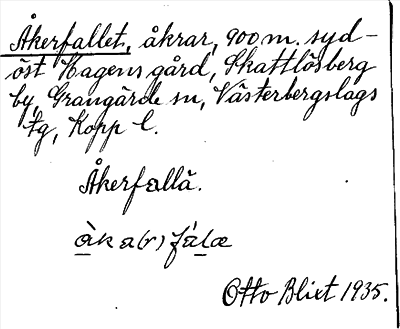 Åkerfallet, åkrar, 900 m. syd-
öst Hagens gård, Skattlösberg
by, Grangärde sn, Västerbergslags
tg, Kopp l.
Åkerfallä.
Otto Blixt 1935.